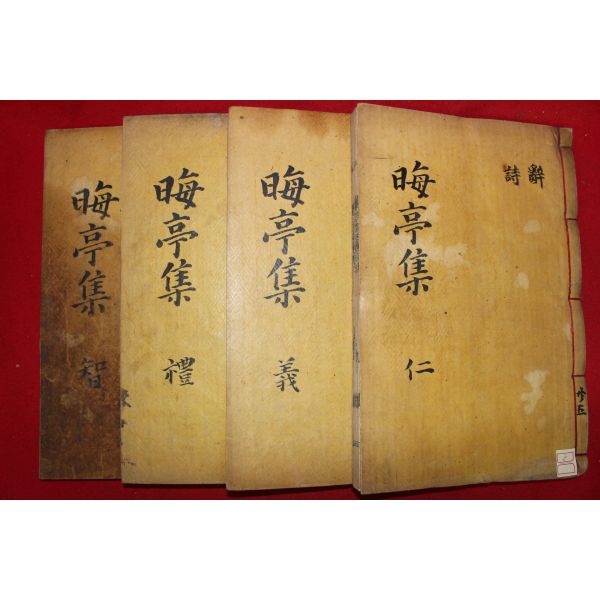 晦亭集 仁
辭
詩
晦亭集 義
晦亭集 禮
晦亭集 智
共五